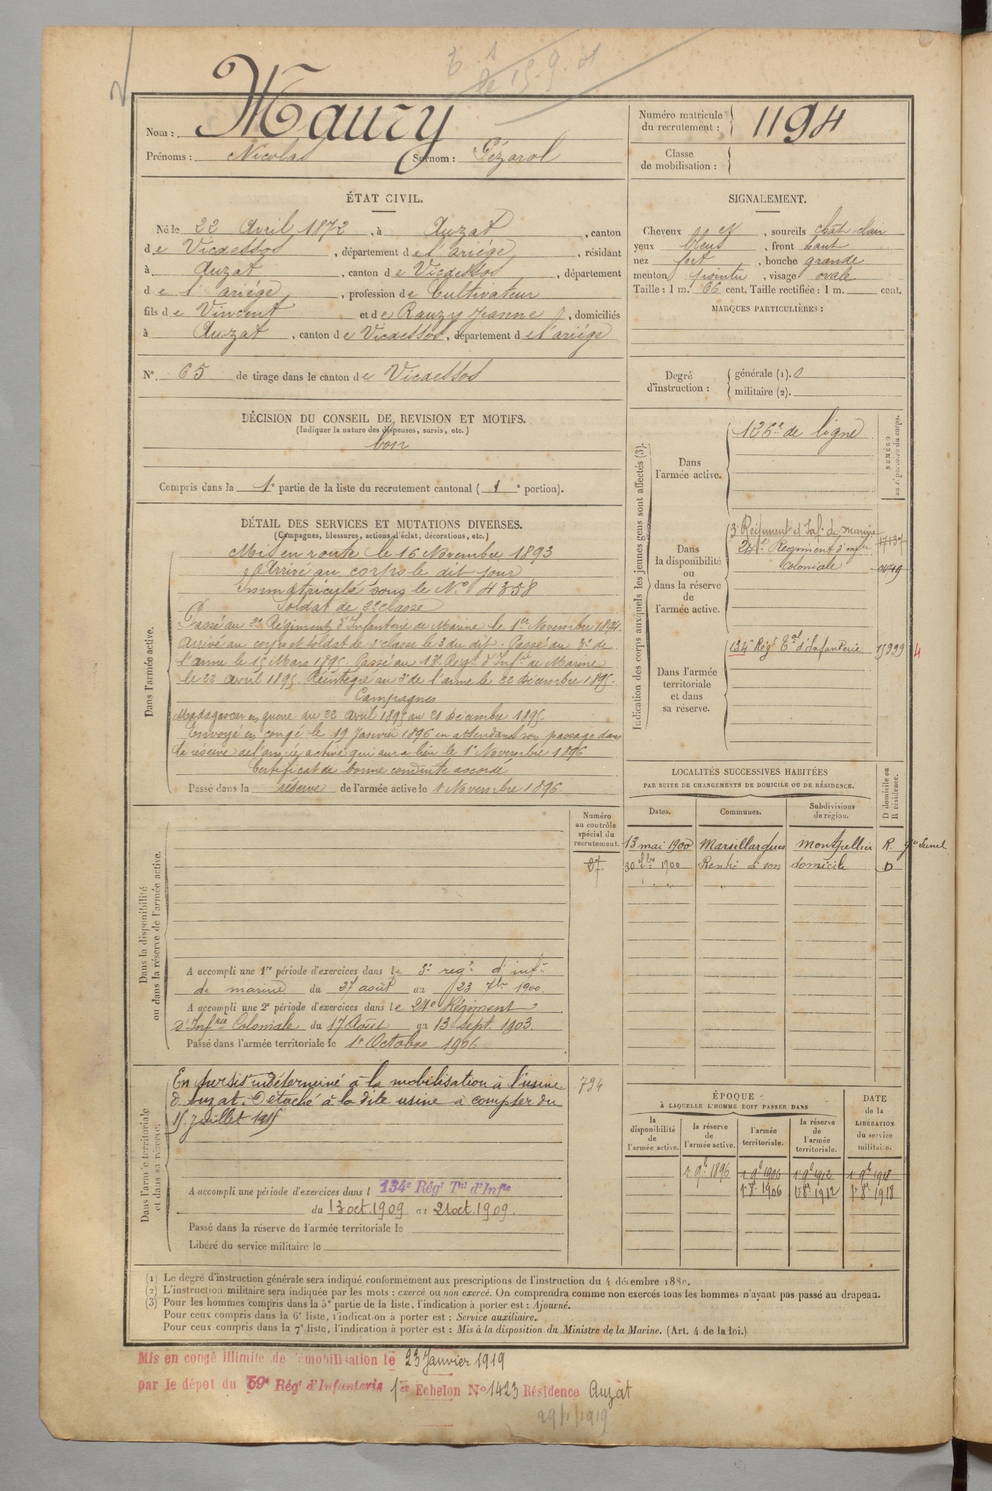 Nom : Maury
Prénoms : Nicolas Surnom : Gézarol
Numéro matricule du recrutement : 1194
Classe de mobilisation :
ÉTAT CIVIL.
Né le 22 Avril 1872, à Auzat, canton
de Vicdessos, département de l'ariége, résidant
à Auzat, canton de Vicdessos, département
de l'ariége, profession de Cultivateur
fils de Vincent et de Rauzy Jeanne, domiciliés
à Auzat, canton de Vicdessos, département de l'ariége
N° 65 de tirage dans le canton de Vicdessos
SIGNALEMENT.
Cheveux, sourcils chât clair
yeux bleus, front haut
nez fort, bouche grande
menton pointu, visage ovale
Taille : 1 m. 66 cent. Taille rectifiée : 1 m. cent.
MARQUES PARTICULIÈRES :
Degré d'instruction : générale (1). 0
militaire (2).
DÉCISION DU CONSEIL DE REVISION ET MOTIFS.
(Indiquer la nature des dispenses, sursis, etc.)
bon
Compris dans la 1e partie de la liste du recrutement cantonal (1e portion).
DÉTAIL DES SERVICES ET MUTATIONS DIVERSES.
(Campagnes, blessures, actions d'éclat, décorations, etc.)
Dans l'armée active.
Mis en route le 16 Novembre 1893
Arrivé au corps le dit jour
Immatriculé sous le N° 4358
Soldat de 2e classe
Passé au 2e Régiment d'Infanterie de Marine le 1er Novembre 1894.
Arrivé au corps et soldat de 2e classe le 3 du dit. Passé au 3e de
l'arme le 15 Mars 1895. Passé au 13e Régt d'Inf. de Marine
le 22 avril 1895. Réintégré au 3e de l'arme le 22 décembre 1895.
Campagnes
Madagascar en guerre du 22 Avril 1895 au 21 décembre 1895
Envoyé en congé le 19 Janvier 1896 en attendant son passage dans
la réserve de l'armée active qui aura lieu le 1er Novembre 1896
Certificat de bonne conduite accordé
Passé dans la réserve de l'armée active le 1 Novembre 1896
Indication des corps auxquels les jeunes gens sont affectés (3).
NUMÉRO
Dans l'armée active.
126e de ligne
Dans la disponibilité ou dans la réserve de l'armée active.
3e Régiment d'Inf. de marine
24e Régiment d'infie
coloniale
Dans l'armée territoriale et dans sa réserve.
134e Régt Tal d'Infanterie 15999 4
LOCALITÉS SUCCESSIVES HABITÉES
PAR SUITE DE CHANGEMENTS DE DOMICILE OU DE RÉSIDENCE.
Dates. Communes. Subdivisions de région. D domicile ou R résidence.
13 mai 1900 Marsillargues Montpellier R
30 1900 Rentré à son domicile D
Numéro au contrôle spécial du recrutement.
87
Dans la disponibilité ou dans la réserve de l'armée active.
A accompli une 1re période d'exercices dans le 3e regt d'infie
de marine du 27 août au 23 7bre 1900.
A accompli une 2e période d'exercices dans le 24e Régiment
d'Infrie Coloniale du 17 Août au 13 Sept. 1903.
Passé dans l'armée territoriale le 1er Octobre 1906
Dans l'armée territoriale et dans sa réserve.
En sursis indéterminé à la mobilisation à l'usine
d'Auzat. Détaché à la dite usine à compter du
15 juillet 1915
794
A accompli une période d'exercices dans l 134e Régt Tal d'Infie
du 13 oct. 1909 au 21 oct. 1909.
Passé dans la réserve de l'armée territoriale le
Libéré du service militaire le
ÉPOQUE
À LAQUELLE L'HOMME DOIT PASSER DANS
la disponibilité de l'armée active. la réserve de l'armée active. l'armée territoriale. la réserve de l'armée territoriale.
DATE de la LIBÉRATION du service militaire.
1 9b 1896 1 9b 1906 1 9b 1912 1 9b 1918
1er 8b 1906 1er 8b 1912 1er 8b 1918
(1) Le degré d'instruction générale sera indiqué conformément aux prescriptions de l'instruction du 4 décembre 1889.
(2) L'instruction militaire sera indiquée par les mots : exercé ou non exercé. On comprendra comme non exercés tous les hommes n'ayant pas passé au drapeau.
(3) Pour les hommes compris dans la 5e partie de la liste, l'indication à porter est : Ajourné.
Pour ceux compris dans la 6e liste, l'indication à porter est : Service auxiliaire.
Pour ceux compris dans la 7e liste, l'indication à porter est : Mis à la disposition du Ministre de la Marine. (Art. 4 de la loi.)
Mis en congé illimité de démobilisation le 23 Janvier 1919
par le dépôt du 59e Régt d'Infanterie 1er Echelon N° 1423 Résidence Auzat
29/1/1919